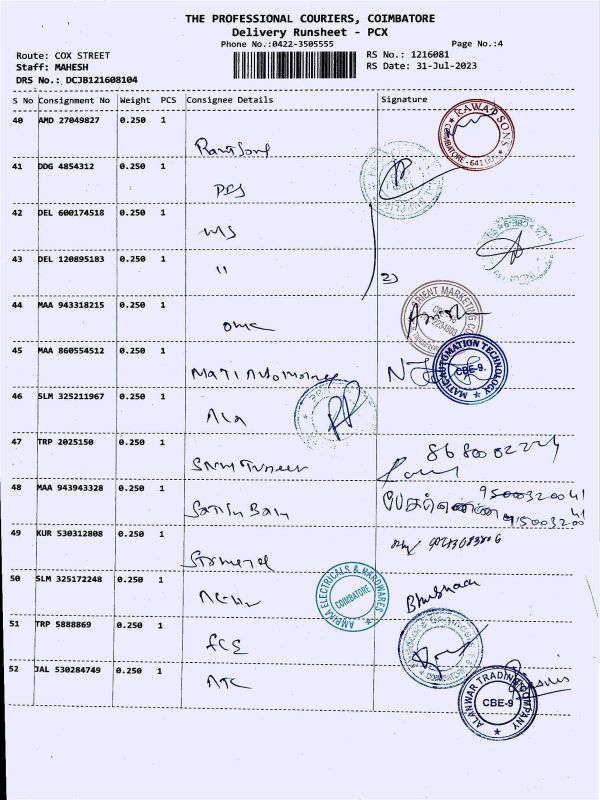 THE PROFESSIONAL COURIERS, COIMBATORE
Delivery Runsheet - PCX
Phone No.:0422-3505555
Page No.:4
Route: COX STREET
RS No.: 1216081
Staff: MAHESH
RS Date: 31-Jul-2023
DRS No.: DCJB121608104
S No Consignment No Weight PCS Consignee Details Signature
40 AMD 27049827 0.250 1
RAWAT SONS
COIMBATORE - 641
41 DDG 4854312 0.250 1
42 DEL 600174518 0.250 1
MS
43 DEL 120895183 0.250 1
"
2)
44 MAA 943318215 0.250 1
OMC
ORIENT MARKETING CO
45 MAA 860554512 0.250 1
MATIC AUTOMATION TECHNOLOGY
CBE-9.
46 SLM 325211967 0.250 1
47 TRP 2025150 0.250 1
48 MAA 943943328 0.250 1
9500320041
9500320041
49 KUR 530312808 0.250 1
50 SLM 325172248 0.250 1
AMBIKA ELECTRICALS & HARDWARES
COIMBATORE
51 TRP 5888869 0.250 1
52 JAL 530284749 0.250 1
ATC
ALANWAR TRADING COMPANY
CBE-9